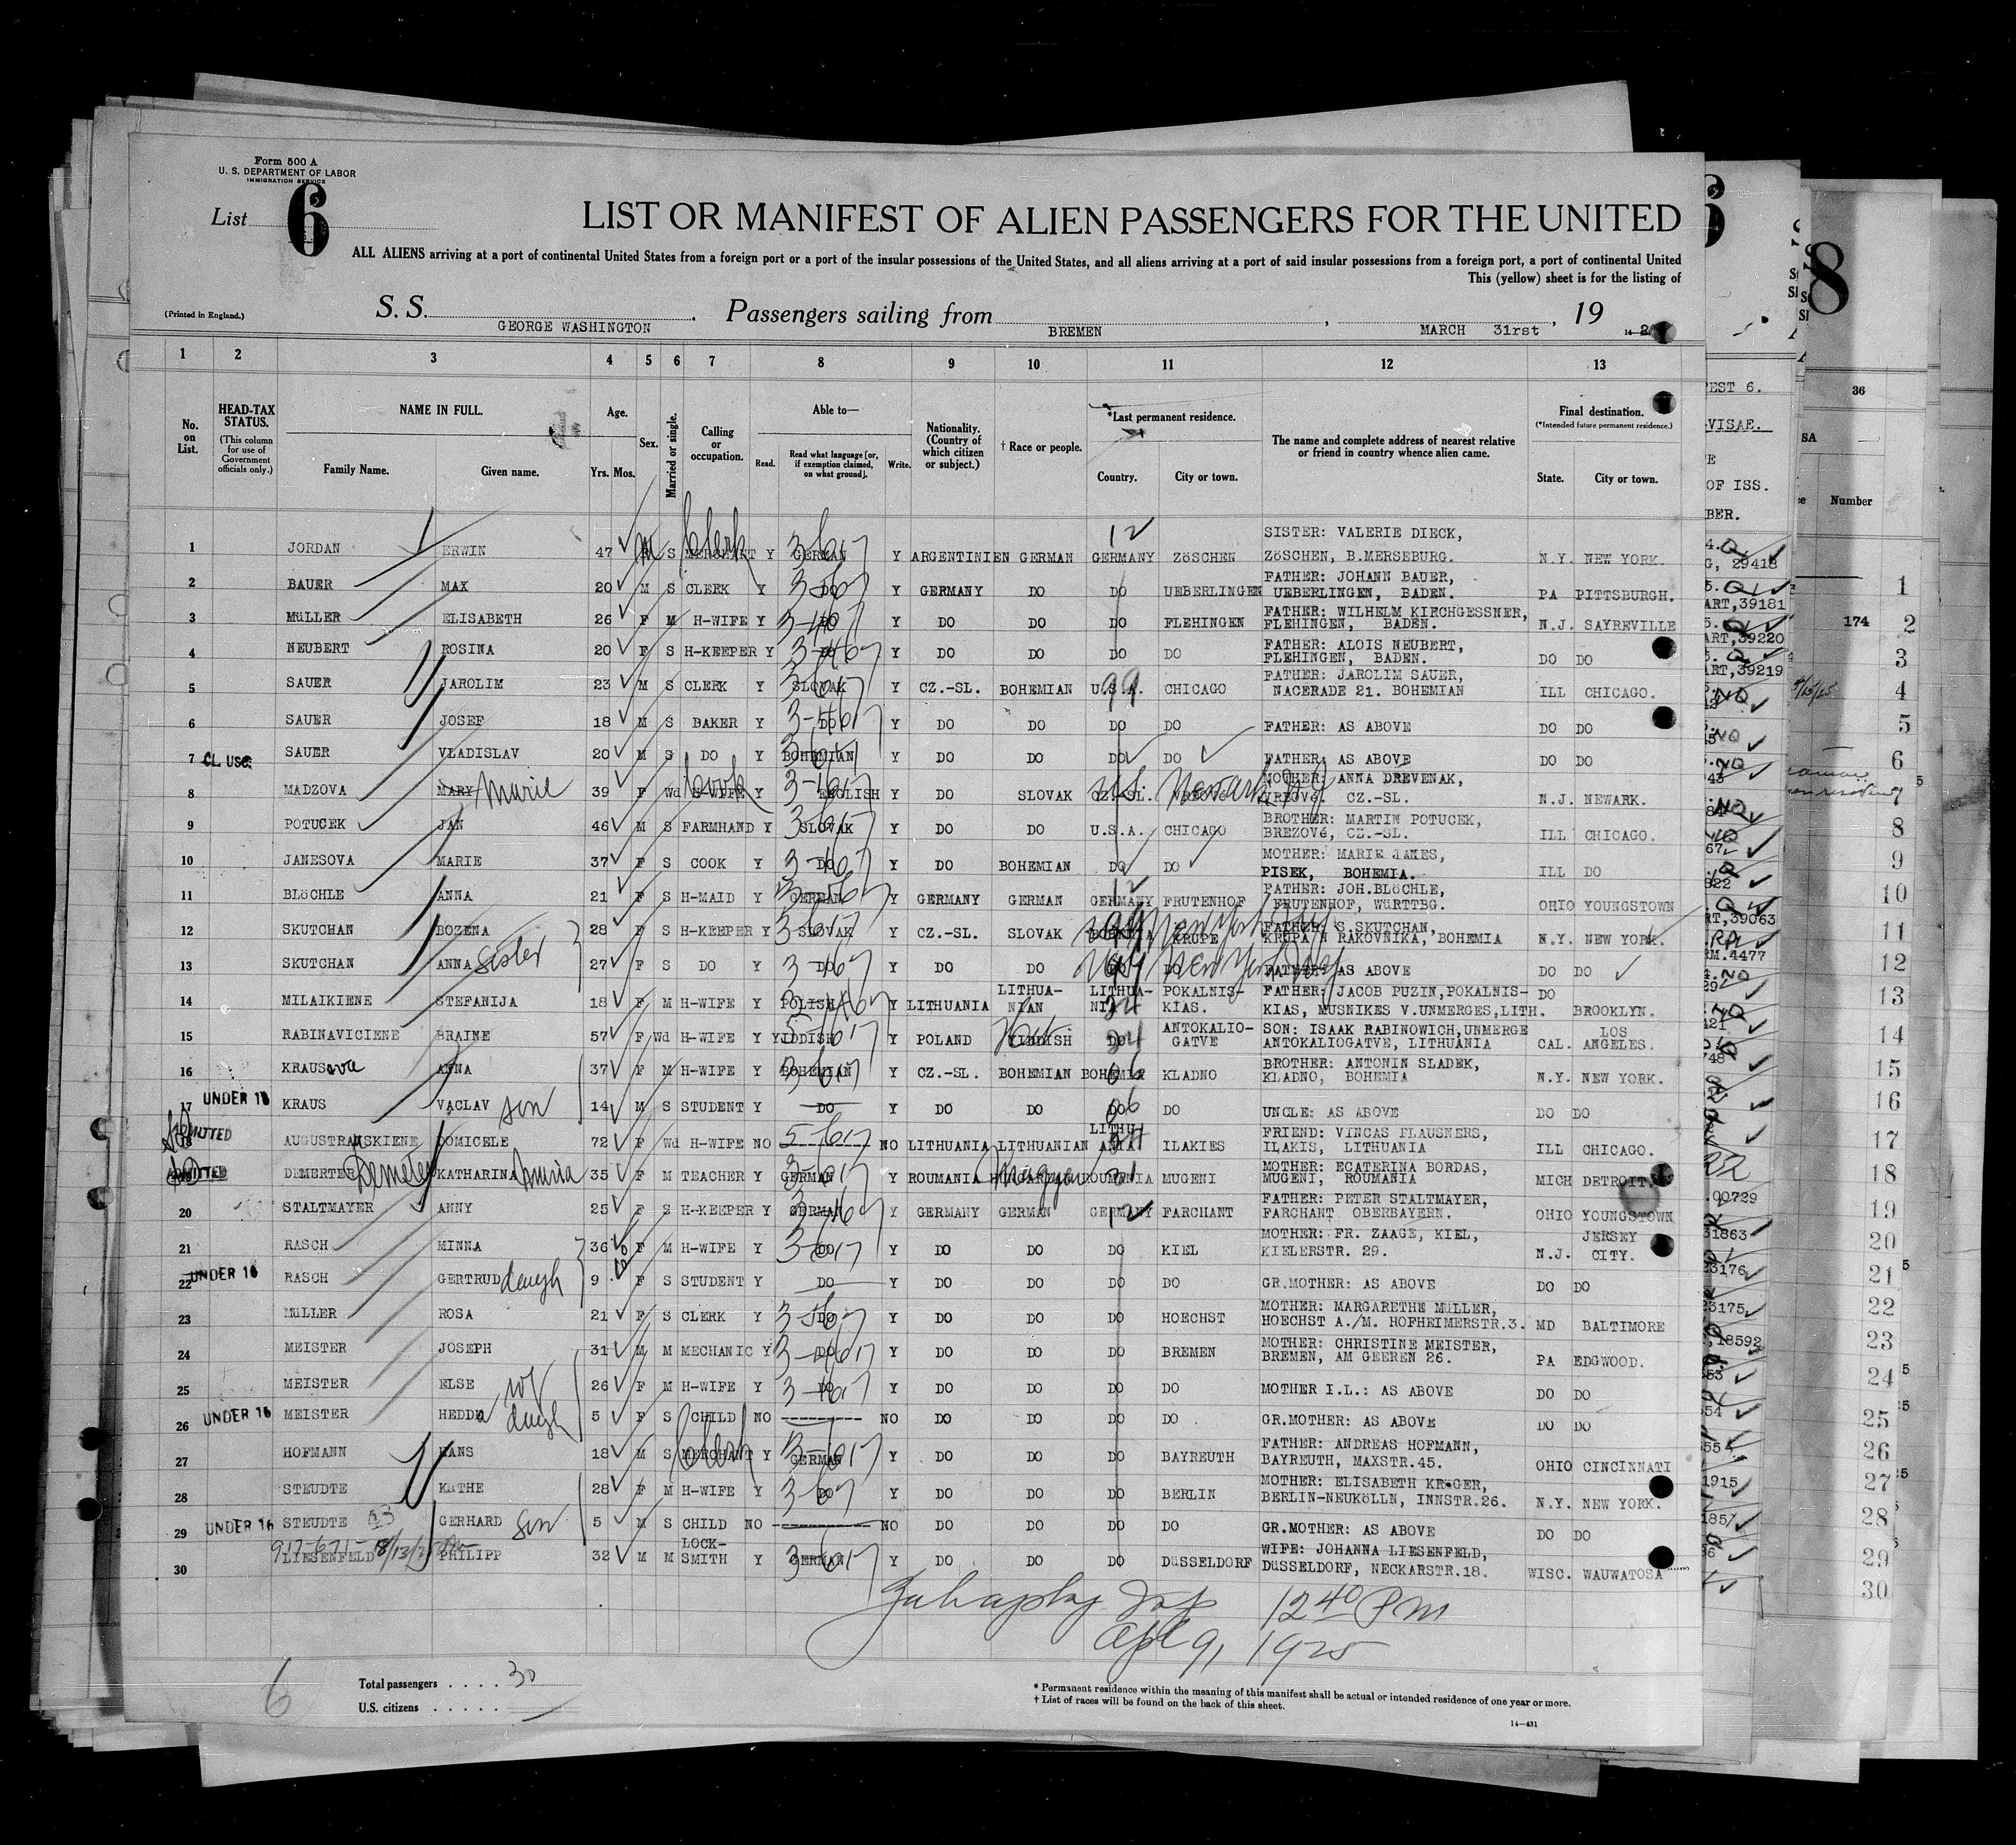 Form 500 A
U. S. DEPARTMENT OF LABOR
IMMIGRATION SERVICE
List 6
LIST OR MANIFEST OF ALIEN PASSENGERS FOR THE UNITED
ALL ALIENS arriving at a port of continental United States from a foreign port or a port of the insular possessions of the United States, and all aliens arriving at a port of said insular possessions from a foreign port, a port of continental United
This (yellow) sheet is for the listing of
(Printed in England.)
S. S. GEORGE WASHINGTON. Passengers sailing from BREMEN, MARCH 31rst, 19
1 2 3 4 5 6 7 8 9 10 11 12 13
No. on List.
HEAD-TAX STATUS.
(This column for use of Government officials only.)
NAME IN FULL.
Family Name. Given name.
Age.
Yrs. Mos.
Sex.
Married or single.
Calling or occupation.
Able to—
Read. Read what language [or, if exemption claimed, on what ground]. Write.
Nationality. (Country of which citizen or subject.)
† Race or people.
*Last permanent residence.
Country. City or town.
The name and complete address of nearest relative or friend in country whence alien came.
Final destination.
(*Intended future permanent residence.)
State. City or town.
1 JORDAN ERWIN 47 M S MERCHANT Clerk Y GERMAN Y ARGENTINIEN GERMAN GERMANY ZöSCHEN SISTER: VALERIE DIECK, ZöSCHEN, B.MERSEBURG. N.Y. NEW YORK.
2 BAUER MAX 20 M S CLERK Y DO Y GERMANY DO DO UEBERLINGEN FATHER: JOHANN BAUER, UEBERLINGEN, BADEN. PA PITTSBURGH.
3 MüLLER ELISABETH 26 F M H-WIFE Y DO Y DO DO DO FLEHINGEN FATHER: WILHELM KIRCHGESSNER, FLEHINGEN, BADEN. N.J. SAYREVILLE
4 NEUBERT ROSINA 20 F S H-KEEPER Y DO Y DO DO DO DO FATHER: ALOIS NEUBERT, FLEHINGEN, BADEN. DO DO
5 SAUER JAROLIM 23 M S CLERK Y SLOVAK Y CZ.-SL. BOHEMIAN U.S.A. CHICAGO FATHER: JAROLIM SAUER, NACERADE 21. BOHEMIAN ILL CHICAGO.
6 SAUER JOSEF 18 M S BAKER Y DO Y DO DO DO DO FATHER: AS ABOVE DO DO
7 SAUER VLADISLAV 20 M S DO Y BOHEMIAN Y DO DO DO DO FATHER: AS ABOVE DO DO
8 MADZOVA MARY Marie 39 F Wd H-WIFE Cook Y ENGLISH Y DO SLOVAK CZ.-SL. Newark MOTHER: ANNA DREVENAK, CZ.-SL. N.J. NEWARK.
9 POTUCEK JAN 46 M S FARMHAND Y SLOVAK Y DO DO U.S.A. CHICAGO BROTHER: MARTIN POTUCEK, BREZOVé, CZ.-SL. ILL CHICAGO.
10 JANESOVA MARIE 37 F S COOK Y DO Y DO BOHEMIAN DO DO MOTHER: MARIE JANES, PISEK, BOHEMIA. ILL DO
11 BLöCHLE ANNA 21 F S H-MAID Y GERMAN Y GERMANY GERMAN GERMANY FRUTENHOF FATHER: JOH.BLöCHLE, FRUTENHOF, WüRTTBG. OHIO YOUNGSTOWN
12 SKUTCHAN BOZENA 28 F S H-KEEPER Y SLOVAK Y CZ.-SL. SLOVAK BOHEMIA KRUPE FATHER: S.SKUTCHAN, KRUPA N RAKOVNIKA, BOHEMIA N.Y. NEW YORK.
13 SKUTCHAN ANNA sister 27 F S DO Y DO Y DO DO DO DO FATHER: AS ABOVE DO DO
14 MILAIKIENE STEFANIJA 18 F M H-WIFE Y POLISH Y LITHUANIA LITHUA-NIAN LITHUA-NIA POKALNIS-KIAS. FATHER: JACOB PUZIN,POKALNIS-KIAS, MUSNIKES V.UNMERGES,LITH. DO BROOKLYN.
15 RABINAVICIENE BRAINE 57 F Wd H-WIFE Y YIDDISH Y POLAND YIDDISH DO ANTOKALIO-GATVE SON: ISAAK RABINOWICH,UNMERGE ANTOKALIOGATVE, LITHUANIA CAL. LOS ANGELES.
16 KRAUSova ANNA 37 F M H-WIFE Y BOHEMIAN Y CZ.-SL. BOHEMIAN BOHEMIA KLADNO BROTHER: ANTONIN SLADEK, KLADNO, BOHEMIA N.Y. NEW YORK.
17 UNDER 16 KRAUS VACLAV son 14 M S STUDENT Y DO Y DO DO DO DO UNCLE: AS ABOVE DO DO
18 ADMITTED AUGUSTRAUSKIENE DOMICELE 72 F Wd H-WIFE NO NO LITHUANIA LITHUANIAN LITHU-ANIA ILAKIES FRIEND: VINCAS PLAUSNERS, ILAKIS, LITHUANIA ILL CHICAGO.
ADMITTED DEMERTER Demeter KATHARINA Anuria 35 F M TEACHER Y GERMAN Y ROUMANIA HUNGARIAN Magyar ROUMANIA MUGENI MOTHER: ECATERINA BORDAS, MUGENI, ROUMANIA MICH DETROIT.
20 STALTMAYER ANNY 25 F S H-KEEPER Y GERMAN Y GERMANY GERMAN GERMANY FARCHANT FATHER: PETER STALTMAYER, FARCHANT OBERBAYERN. OHIO YOUNGSTOWN
21 RASCH MINNA 36 F M H-WIFE Y DO Y DO DO DO KIEL MOTHER: FR. ZAAGE, KIEL, KIELERSTR. 29. N.J. JERSEY CITY.
22 UNDER 16 RASCH GERTRUD daugh 9 F S STUDENT Y DO Y DO DO DO DO GR.MOTHER: AS ABOVE DO DO
23 MüLLER ROSA 21 F S CLERK Y DO Y DO DO DO HOECHST MOTHER: MARGARETHE MüLLER, HOECHST A./M. HOFHEIMERSTR.3. MD BALTIMORE
24 MEISTER JOSEPH 31 M M MECHANIC Y DO Y DO DO DO BREMEN MOTHER: CHRISTINE MEISTER, BREMEN, AM GEEREN 26. PA EDGWOOD.
25 MEISTER ELSE wf 26 F M H-WIFE Y DO Y DO DO DO DO MOTHER I.L.: AS ABOVE DO DO
26 UNDER 16 MEISTER HEDDA daugh 5 F S CHILD NO NO DO DO DO DO GR.MOTHER: AS ABOVE DO DO
27 HOFMANN HANS 18 M S MERCHANT Clerk Y GERMAN Y DO DO DO BAYREUTH FATHER: ANDREAS HOFMANN, BAYREUTH, MAXSTR.45. OHIO CINCINNATI
28 STEUDTE KäTHE 28 F M H-WIFE Y DO Y DO DO DO BERLIN MOTHER: ELISABETH KRüGER, BERLIN-NEUKöLLN, INNSTR.26. N.Y. NEW YORK.
29 UNDER 16 STEUDTE GERHARD son 5 M S CHILD NO NO DO DO DO DO GR.MOTHER: AS ABOVE DO DO
30 LIESENFELD PHILIPP 32 M M LOCK-SMITH Y GERMAN Y DO DO DO DüSSELDORF WIFE: JOHANNA LIESENFELD, DüSSELDORF, NECKARSTR.18. WISC. WAUWATOSA
12 40 PM
Apl 9, 1925
6
Total passengers . . . . 30
U.S. citizens . . . . .
* Permanent residence within the meaning of this manifest shall be actual or intended residence of one year or more.
† List of races will be found on the back of this sheet.
14—431
8
36
Number
174